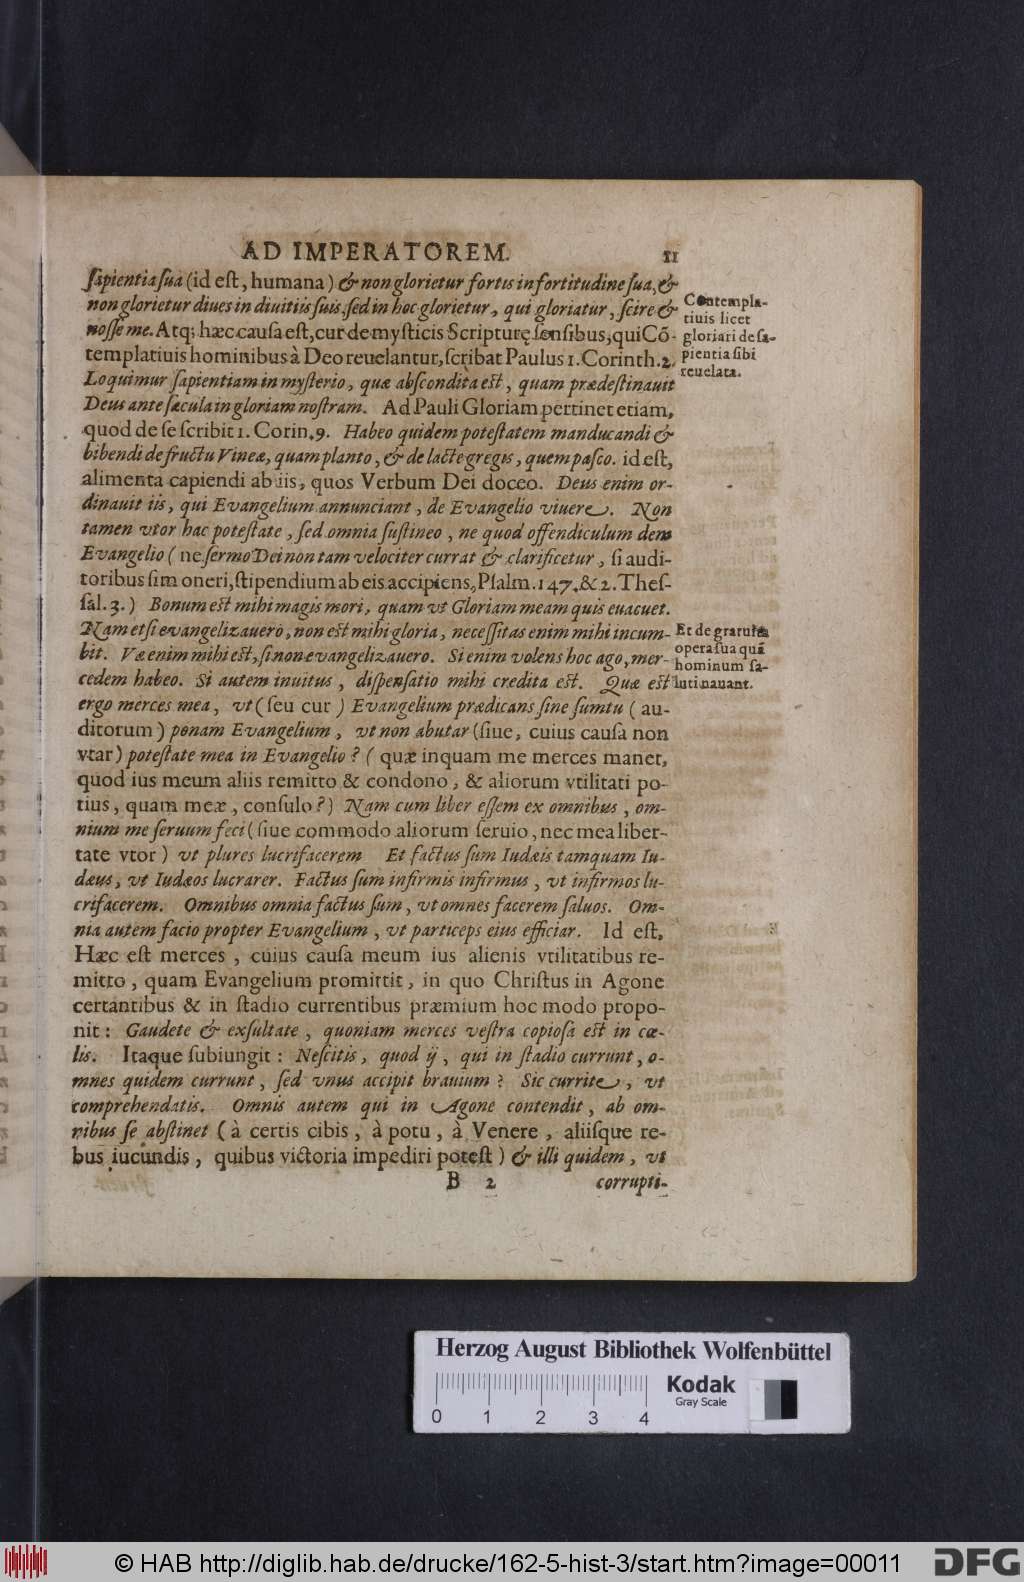 AD IMPERATOREM. 11
ſapientia ſua (id eſt, humana) & non glorietur fortis in fortitudine ſua, &
non glorietur diues in diuitiis ſuis, ſed in hoc glorietur, qui gloriatur, ſcire &
noſſe me. Atq; hæc cauſa eſt, cur de myſticis Scripturę ſenſibus, qui Cõ-
templatiuis hominibus à Deo reuelantur, ſcribat Paulus 1. Corinth. 2.
Loquimur ſapientiam in myſterio, quæ abſcondita eſt, quam prædeſtinauit
Deus ante ſæcula in gloriam noſtram. Ad Pauli Gloriam pertinet etiam,
quod de ſe ſcribit 1. Corin. 9. Habeo quidem poteſtatem manducandi &
bibendi de fructu Vineæ, quam planto, & de lacte gregis, quem paſco. id eſt,
alimenta capiendi ab iis, quos Verbum Dei doceo. Deus enim or-
dinauit iis, qui Evangelium annunciant, de Evangelio viuere. Non
tamen vtor hac poteſtate, ſed omnia ſuſtineo, ne quod offendiculum dem
Evangelio (ne ſermo Dei non tam velociter currat & clarificetur, ſi audi-
toribus ſim oneri, ſtipendium ab eis accipiens, Pſalm. 147. & 2. Theſ-
ſal. 3.) Bonum eſt mihi magis mori, quam vt Gloriam meam quis euacuet.
Nam etſi evangelizauero, non eſt mihi gloria, neceſſitas enim mihi incum-
bit. Væ enim mihi eſt, ſi non evangelizauero. Si enim volens hoc ago, mer-
cedem habeo. Si autem inuitus, diſpenſatio mihi credita eſt. Quæ eſt
ergo merces mea, vt (ſeu cur) Evangelium prædicans ſine ſumtu (au-
ditorum) ponam Evangelium, vt non abutar (ſiue, cuius cauſa non
vtar) poteſtate mea in Evangelio? (quæ inquam me merces manet,
quod ius meum aliis remitto & condono, & aliorum vtilitati po-
tius, quam meæ, conſulo?) Nam cum liber eſſem ex omnibus, om-
nium me ſeruum feci (ſiue commodo aliorum ſeruio, nec mea liber-
tate vtor) vt plures lucrifacerem. Et factus ſum Iudæis tamquam Iu-
dæus, vt Iudæos lucrarer. Factus ſum infirmis infirmus, vt infirmos lu-
crifacerem. Omnibus omnia factus ſum, vt omnes facerem ſaluos. Om-
nia autem facio propter Evangelium, vt particeps eius efficiar. Id eſt,
Hæc eſt merces, cuius cauſa meum ius alienis vtilitatibus re-
mitto, quam Evangelium promittit, in quo Chriſtus in Agone
certantibus & in ſtadio currentibus præmium hoc modo propo-
nit: Gaudete & exſultate, quoniam merces veſtra copioſa eſt in cœ-
lis. Itaque ſubiungit: Neſcitis, quod ij, qui in ſtadio currunt, o-
mnes quidem currunt, ſed vnus accipit brauium? Sic currite, vt
comprehendatis. Omnis autem qui in Agone contendit, ab om-
nibus ſe abſtinet (à certis cibis, à potu, à Venere, aliiſque re-
bus iucundis, quibus victoria impediri poteſt) & illi quidem, vt
B 2 corrupti-
Contempla-
tiuis licet
gloriari de ſa-
pientia ſibi
reuelata.
Et de gratuita
opera ſua quã
hominum ſa-
luti nauant.
Herzog August Bibliothek Wolfenbüttel
0 1 2 3 4
Kodak
Gray Scale
© HAB http://diglib.hab.de/drucke/162-5-hist-3/start.htm?image=00011
DFG